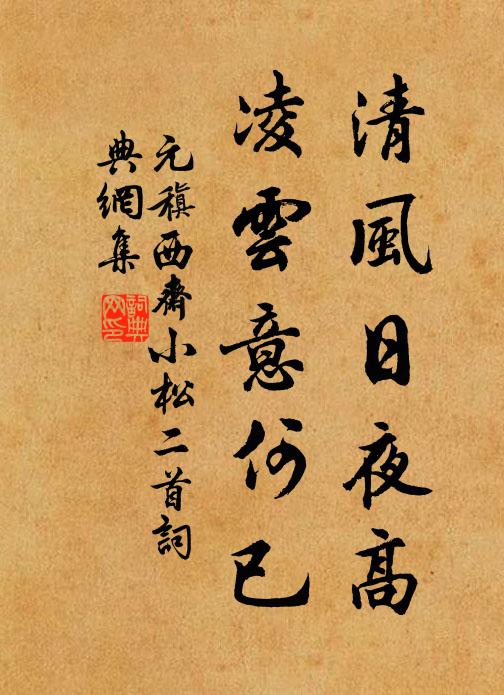 清風日夜高
凌雲意何已
元稹西齋小松二首詞
典網集
詞典网印